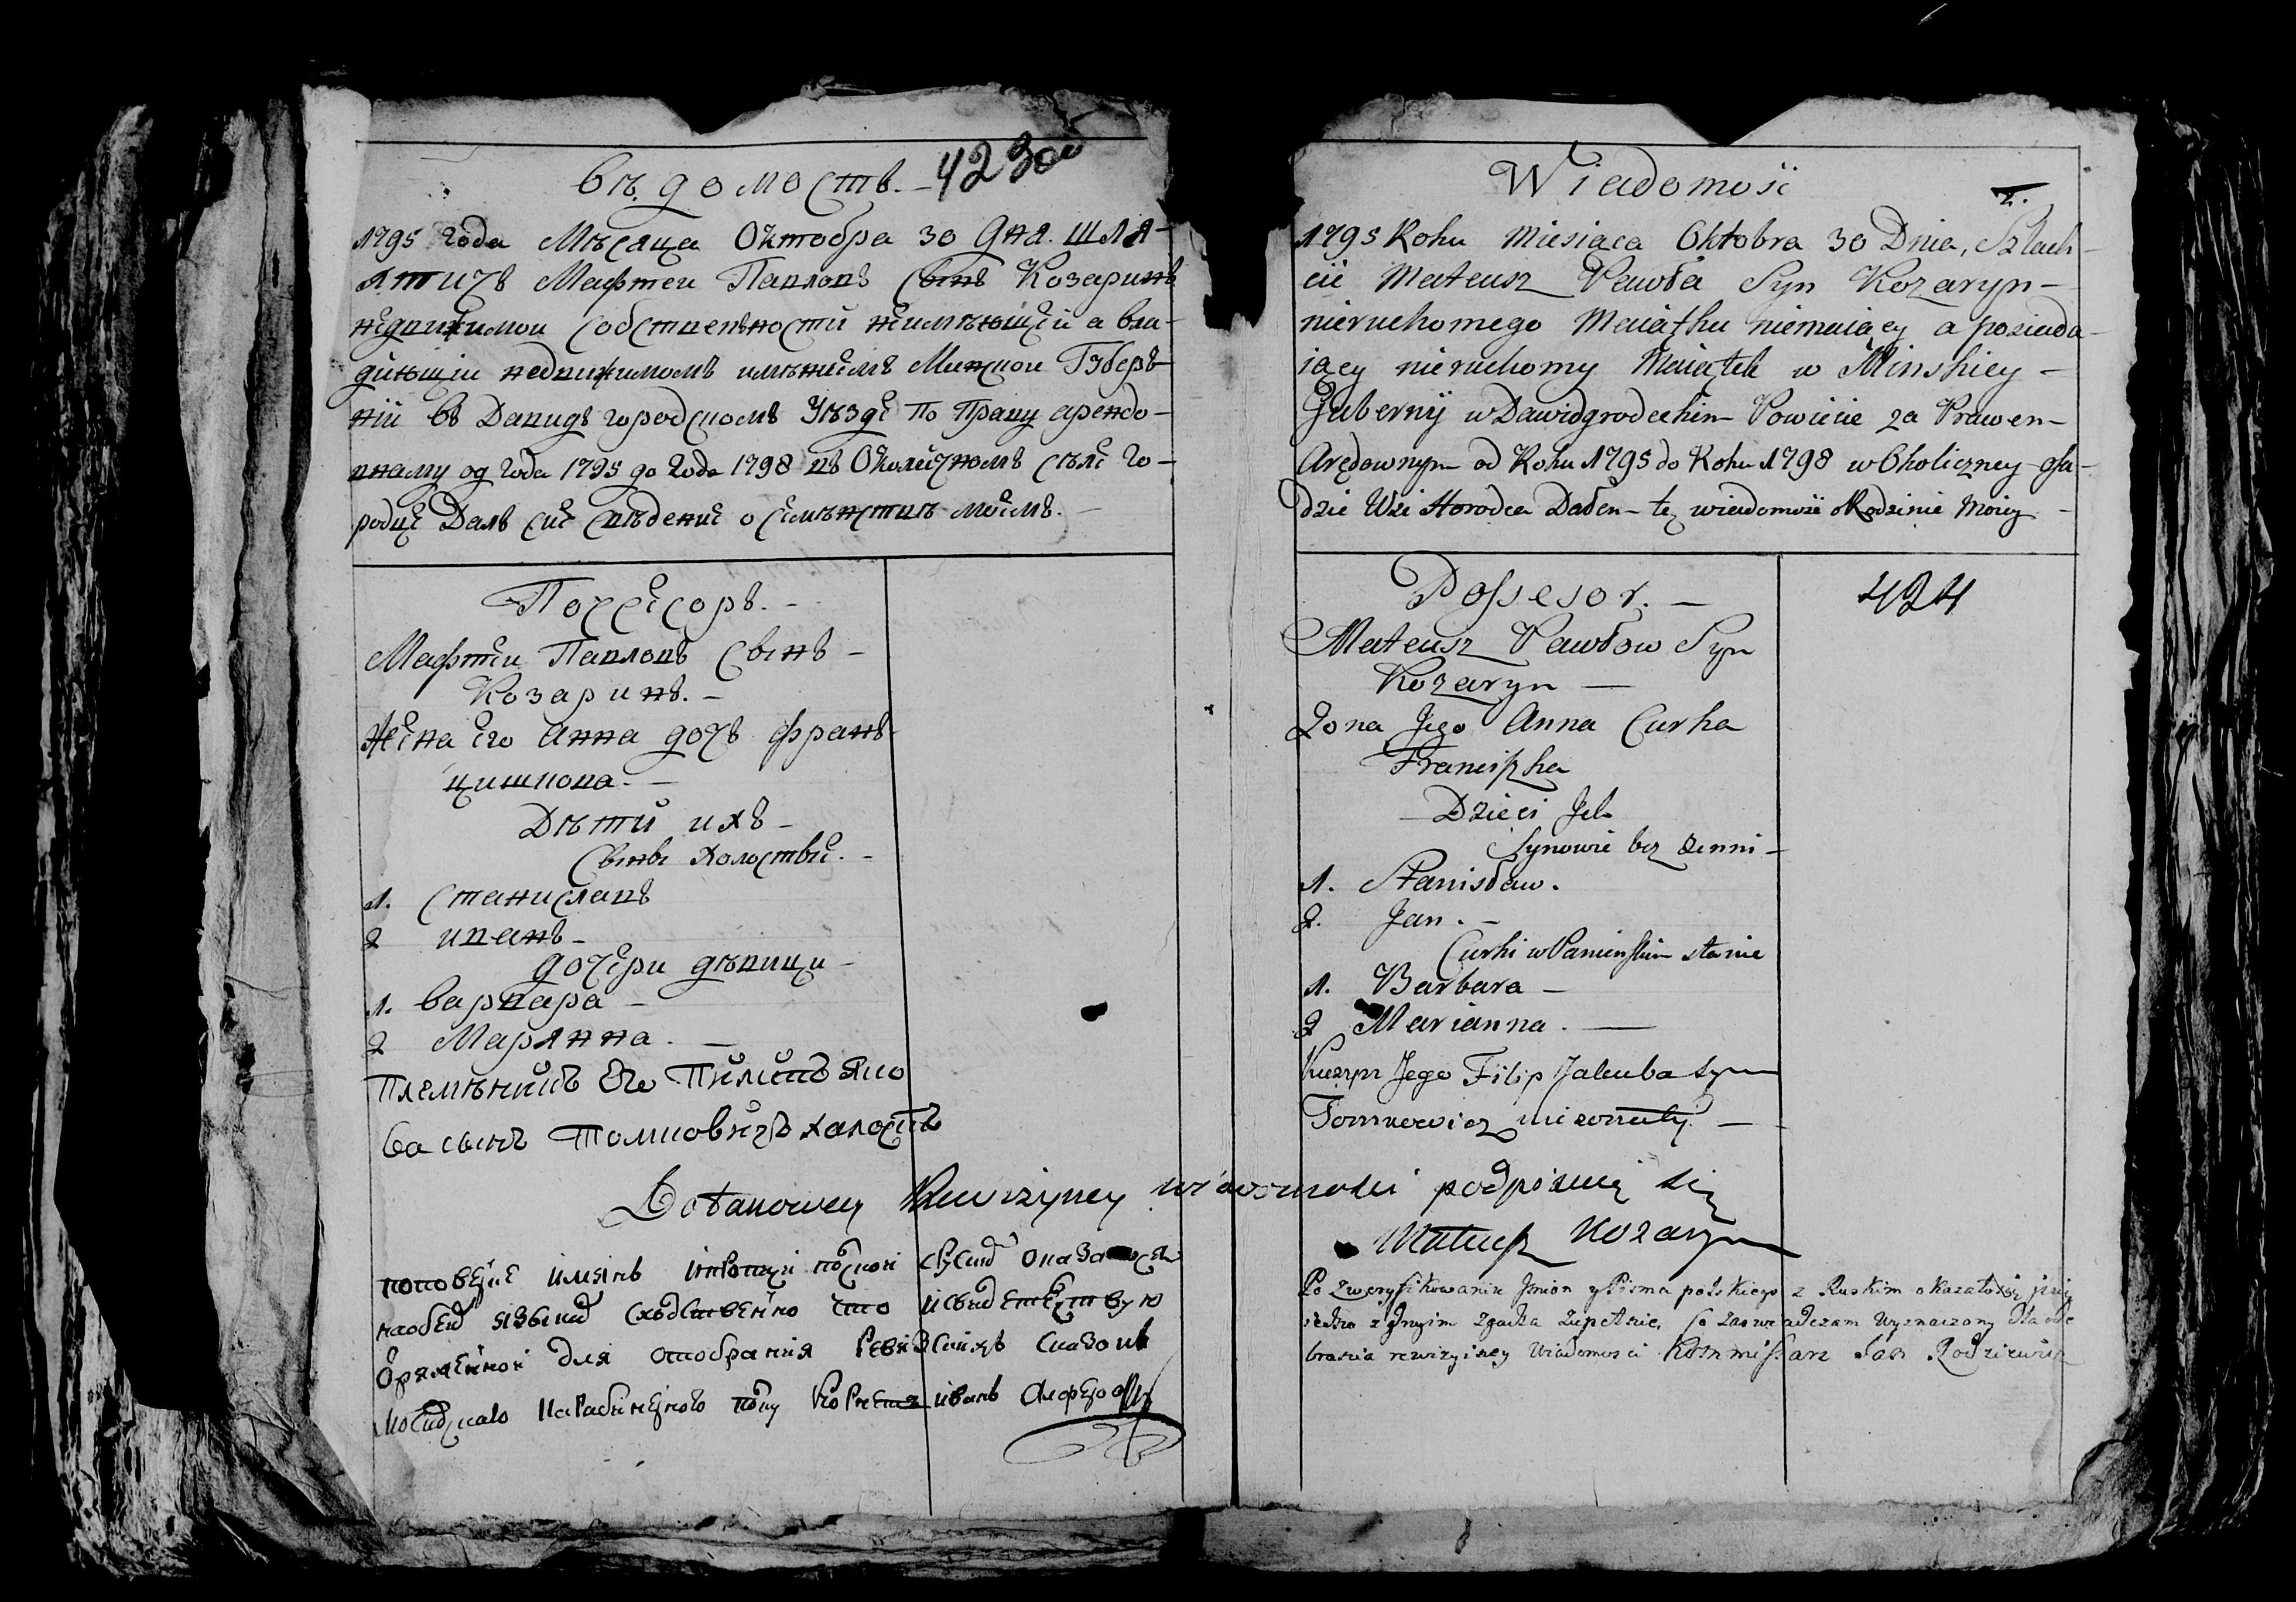 Вѣдомость. 4230
1795 года Мѣсяца Октобра 30 Дня. шля-
хтичъ Мафтеи Павловъ сынъ Козаринъ
недвижимои собственъности неимѣющей а вла-
деющи недвижимомъ имѣнiемъ Минскои Губеръ
нiи въ Давидъ городскомъ Уѣзде по праву арендо-
вному од года 1795 до года 1798 въ Околичномъ селѣ Го-
родце Далъ сие сведение о семѣнстве моемъ.
Посесоръ.
Мафтеи Павловъ сынъ
Козаринъ.
Жена его Анна дочъ Франъ
цишкова.
Дѣти ихъ
Сыны холостые.
1. Станиславъ
2 иванъ
дочери дѣвици
1. варвара
2 Марянна.
племѣникъ Его Пилипъ Яко
ва сынъ Томковичъ халостъ
Wiadomość
2.
1795 Roku Miesiąca Oktobra 30 Dnia, Szlach-
cic Mateusz Pawła Syn Kozaryn-
nieruchomego Maiątku niemaiący a posiada-
iący nieruchomy Maiątek w Minskiey
Gubernij w Dawidgrodeckim Powiecie za Prawem
Arędownym od Roku 1795 do Roku 1798 w Okoliczney osa-
dzie Wsi Horodca Dałem tę wiadomość o Rodzinie moiey
Possesor.
424
Mateusz Pawłow Syn
Kozaryn
Zona Jego Anna Curka
Franciszka
Dzieci Ich
Synowie bez zenni
1. Stanisław.
2. Jan.
Curki w Panienskim stanie
1. Barbara
2 Marianna.
Kuzyn Jego Filip Jakuba syn
Tomkowicz niezonaty.
Do takowey Rewizyney wiadomosci podpisuię się
Mateusz Kozaryn
наобеихъ языкахъ сходственно что и свидетельствую
для отобрания Ревизскихъ сказокъ
иванъ
Po zweryfikowaniu Imion y Pisma polskiego z Ruskim okazało się iż
iedno z drugim zgadza zupełnie, co zaswiadczam wyznaczony Dla ode
brania rewizyiney wiadomosci Kommissarz Jan Rodziewicz